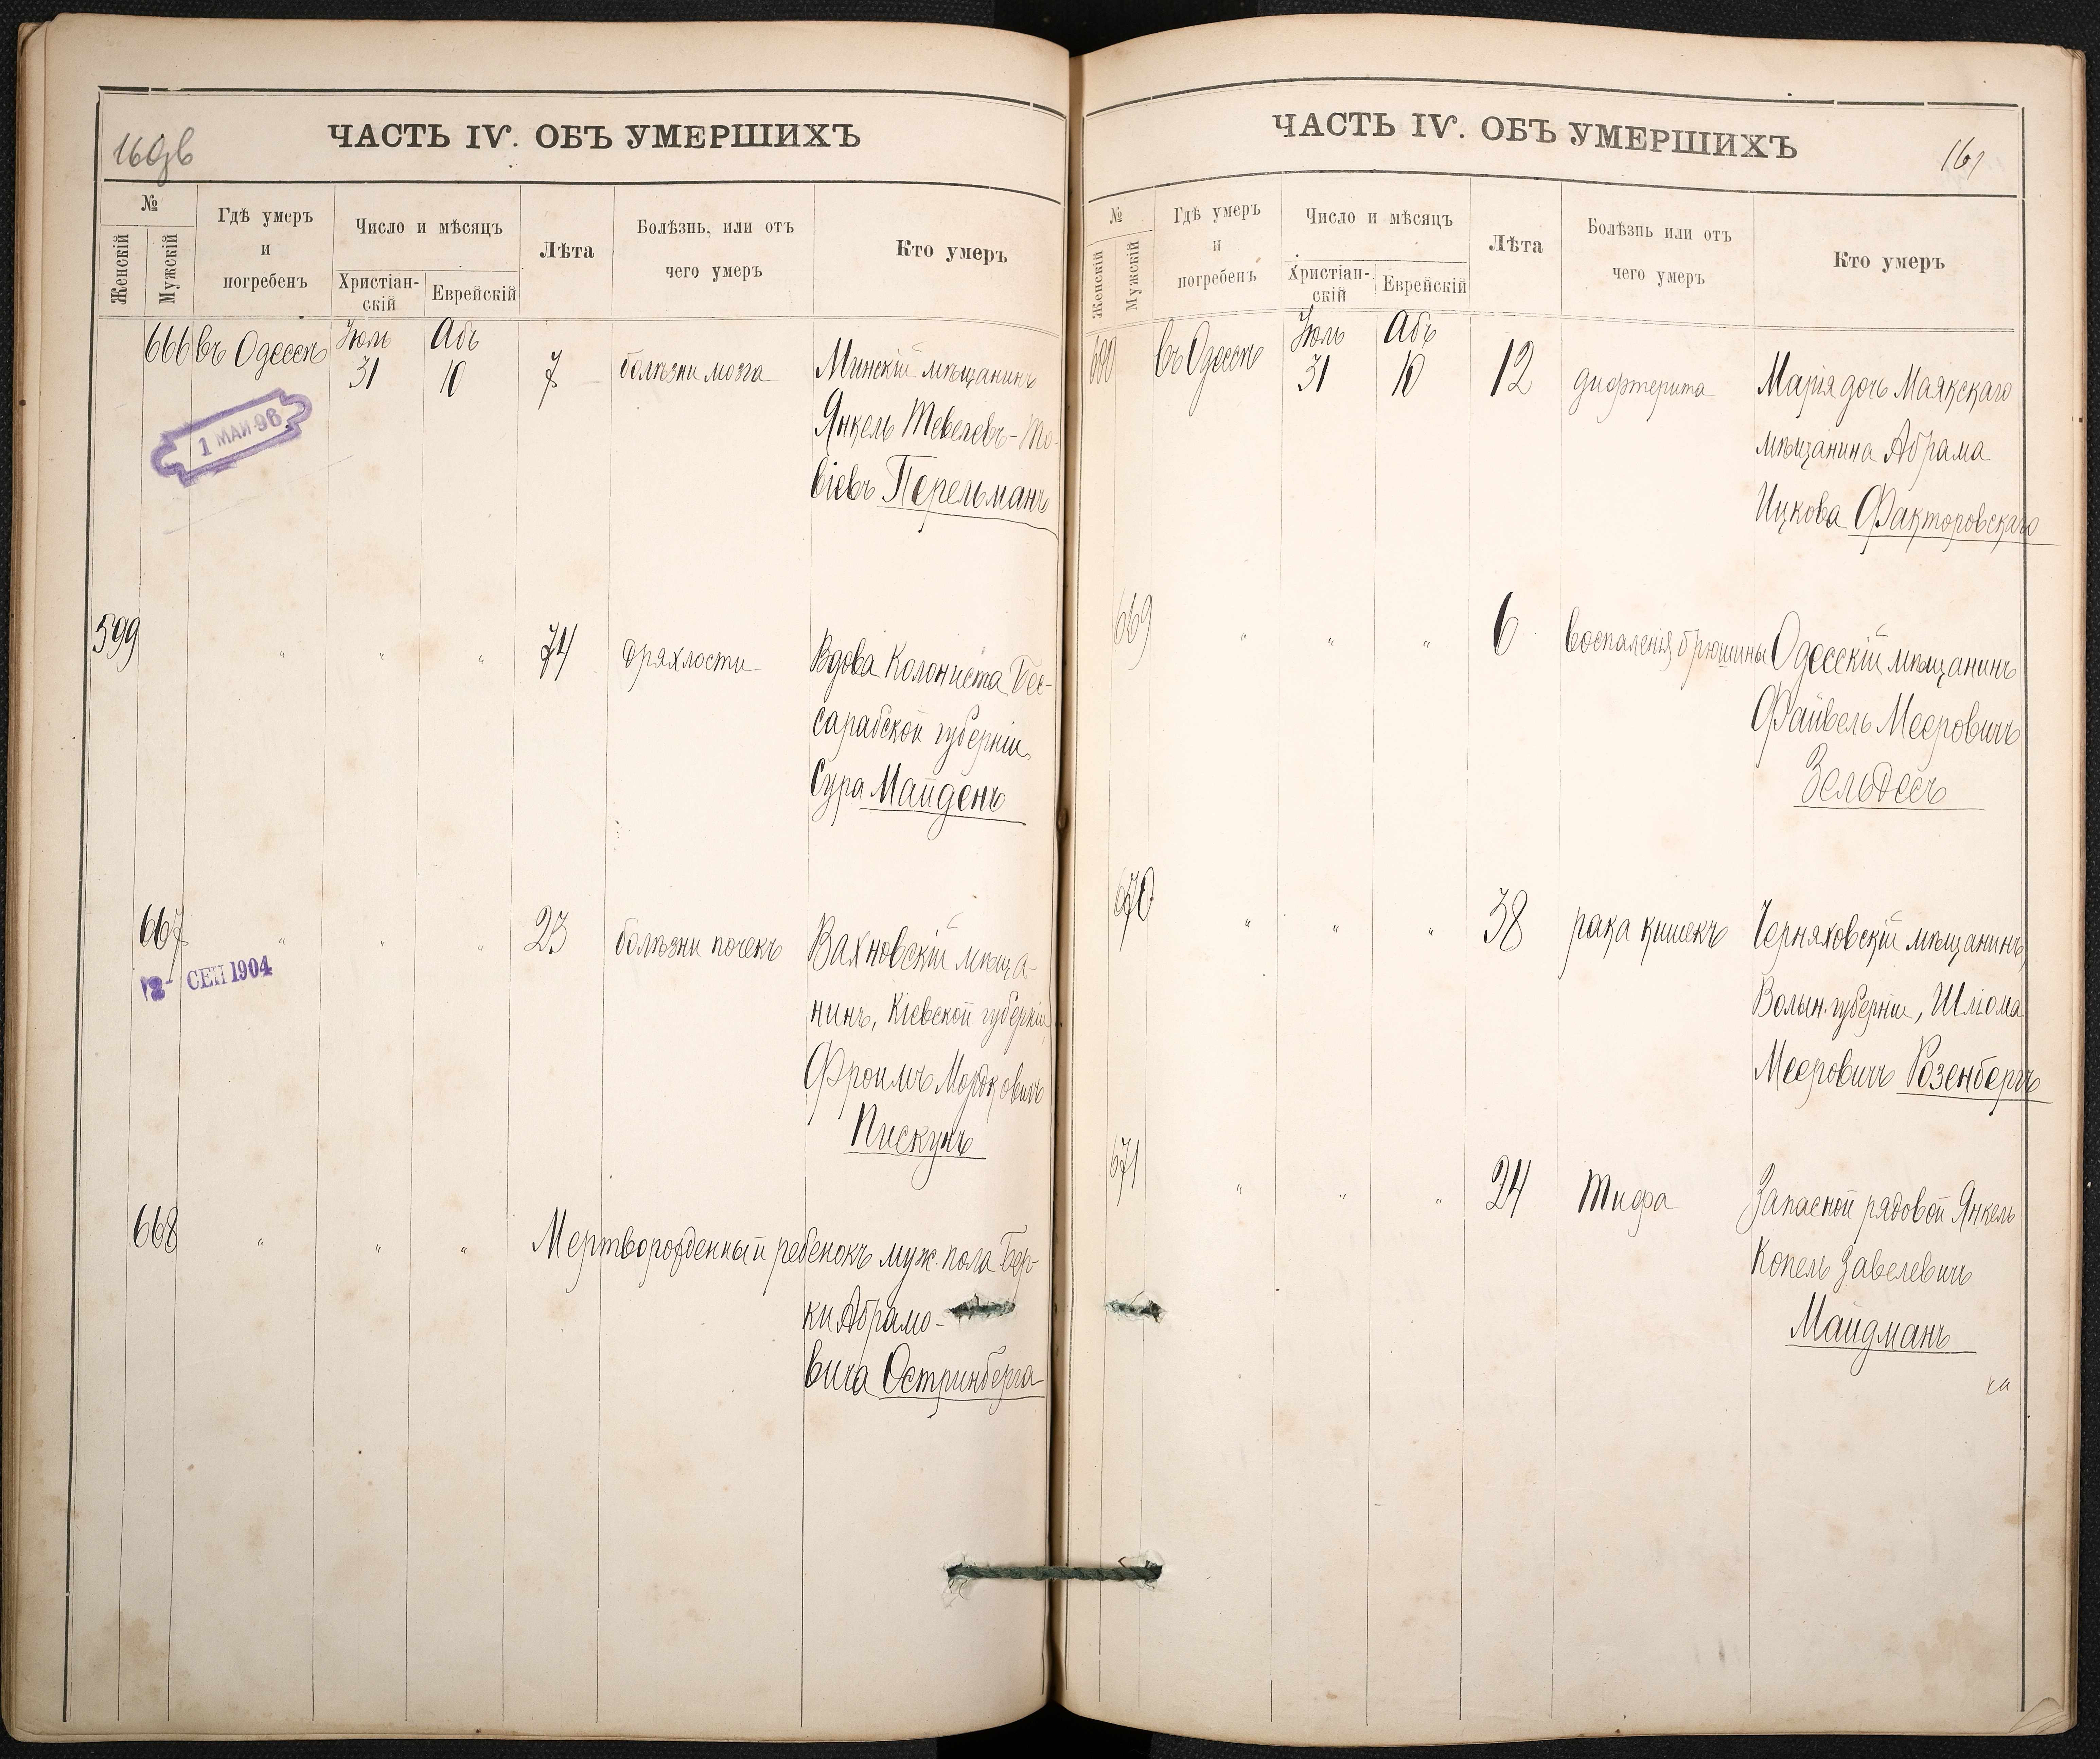 160дв
ЧАСТЬ IV. ОБЪ УМЕРШИХЪ
№
Женскій
Мужскій
Гдѣ умеръ
и
погребенъ
Число и мѣсяцъ
Христіан-
скій
Еврейскій
Лѣта
Болѣзнь, или отъ
чего умеръ
Кто умеръ
666 въ Одессѣ Іюль 31 Абъ 10 7 болѣзни мозга Минскій мѣщанинъ
Янкель Тевелевъ-То-
віевъ Перельманъ
1 МАЙ 96
599 " " " 74 дряхлости Вдова Колониста Бес-
сарабской губерніи
Сура Майденъ
667 " " " 23 болѣзни почекъ Вахновскій мѣща-
нинъ, Кіевской губерніи,
Фроимъ Мордковичъ
Пискунъ
2 - СЕН 1904
668 " " " Мертворожденный ребенокъ муж. пола Бер-
ки Абрамо-
вича Остринберга
ЧАСТЬ IV. ОБЪ УМЕРШИХЪ
161
№
Женскій
Мужскій
Гдѣ умеръ
и
погребенъ
Число и мѣсяцъ
Христіан-
скій
Еврейскій
Лѣта
Болѣзнь или отъ
чего умеръ
Кто умеръ
600 въ Одессѣ Іюль 31 Абъ 10 12 дифтерита Марія дочь Маякскаго
мѣщанина Абрама
Ицкова Факторовскаго
669 " " " 6 воспаленія брюшины Одесскій мѣщанинъ
Файвель Мееровичъ
Зельдесъ
670 " " " 38 рака кишекъ Черняховскій мѣщанинъ,
Волын. губерніи, Шліома
Мееровичъ Розенбергъ
671 " " " 24 Тифа Запасной рядовой Янкель
Копель Завелевичъ
Майдманъ